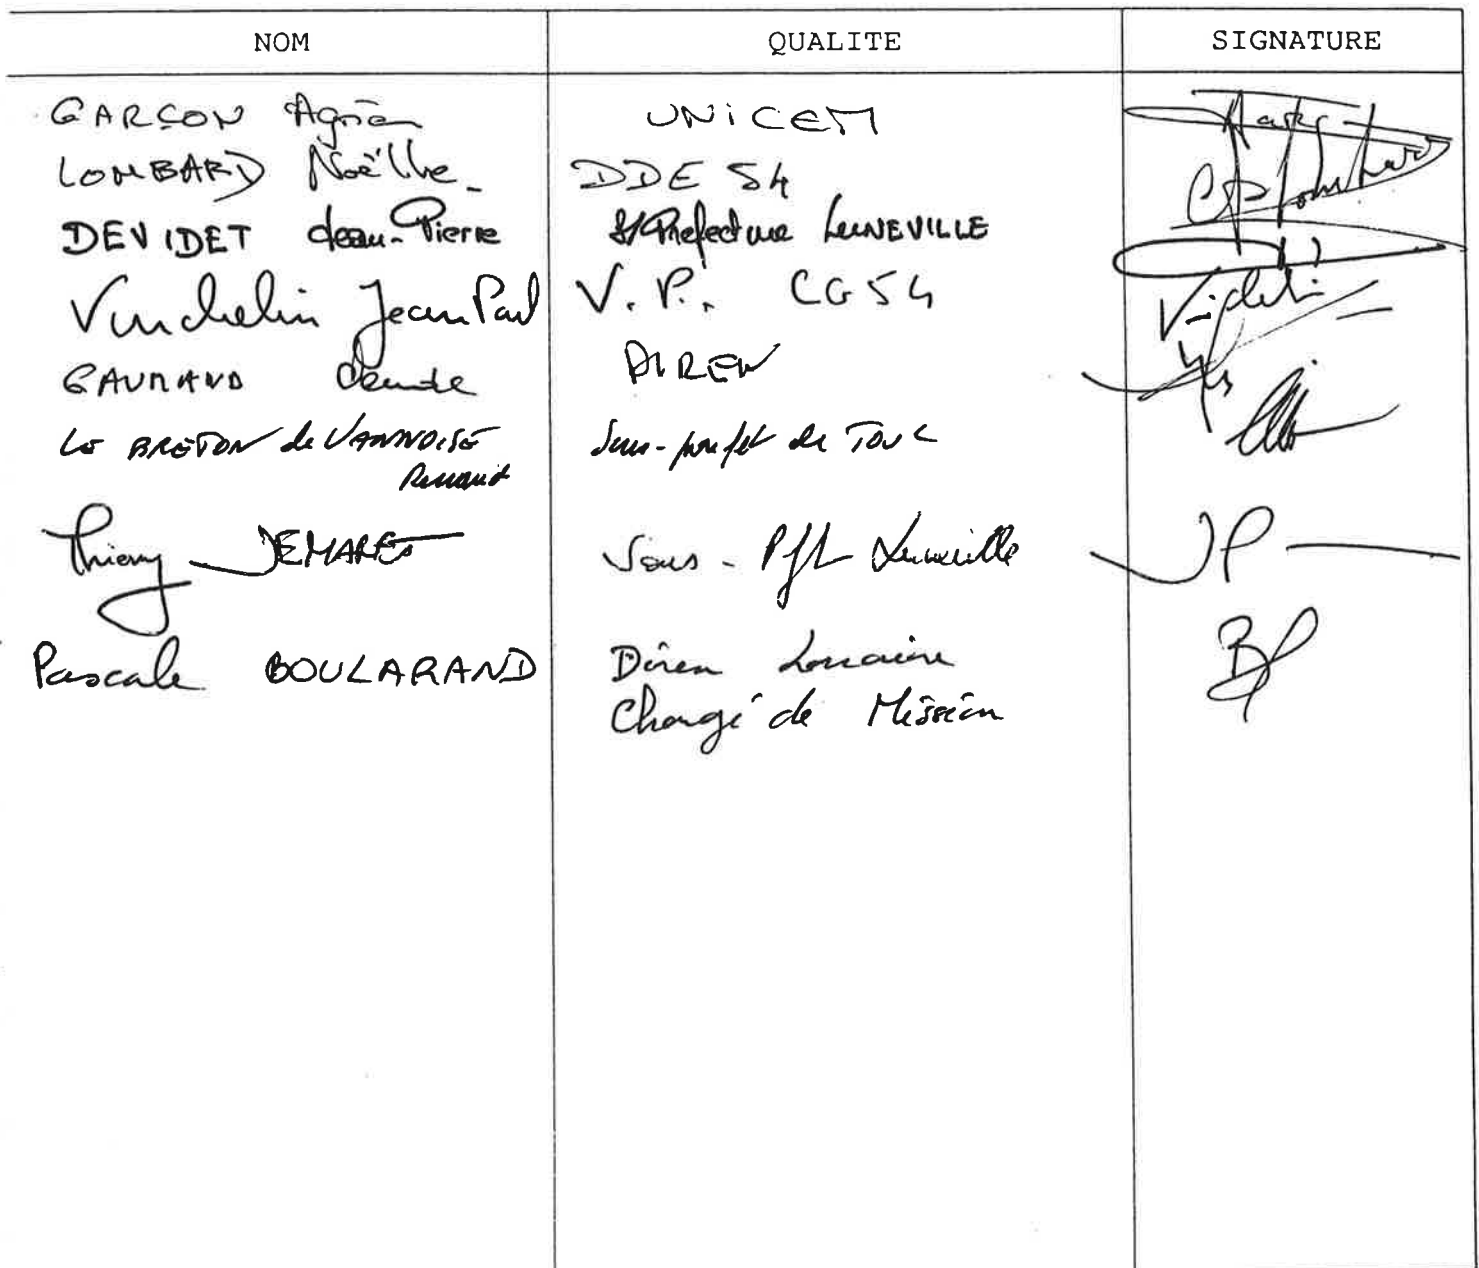 NOM QUALITE SIGNATURE
GARÇON UNICEM
LOMBARD Noëlle DDE 54
DEVIDET Jean-Pierre S/Préfecture LUNEVILLE
Vinchelin Jean Paul V.P. CG54
GAUMAND Claude DIREN
Le BRETON de VANNOISE Sous-préfet de TOUL
Renaud
Thierry DEMARET Sous-Pft Lunéville
Pascale BOULARAND Diren Lorraine
Chargé de Mission